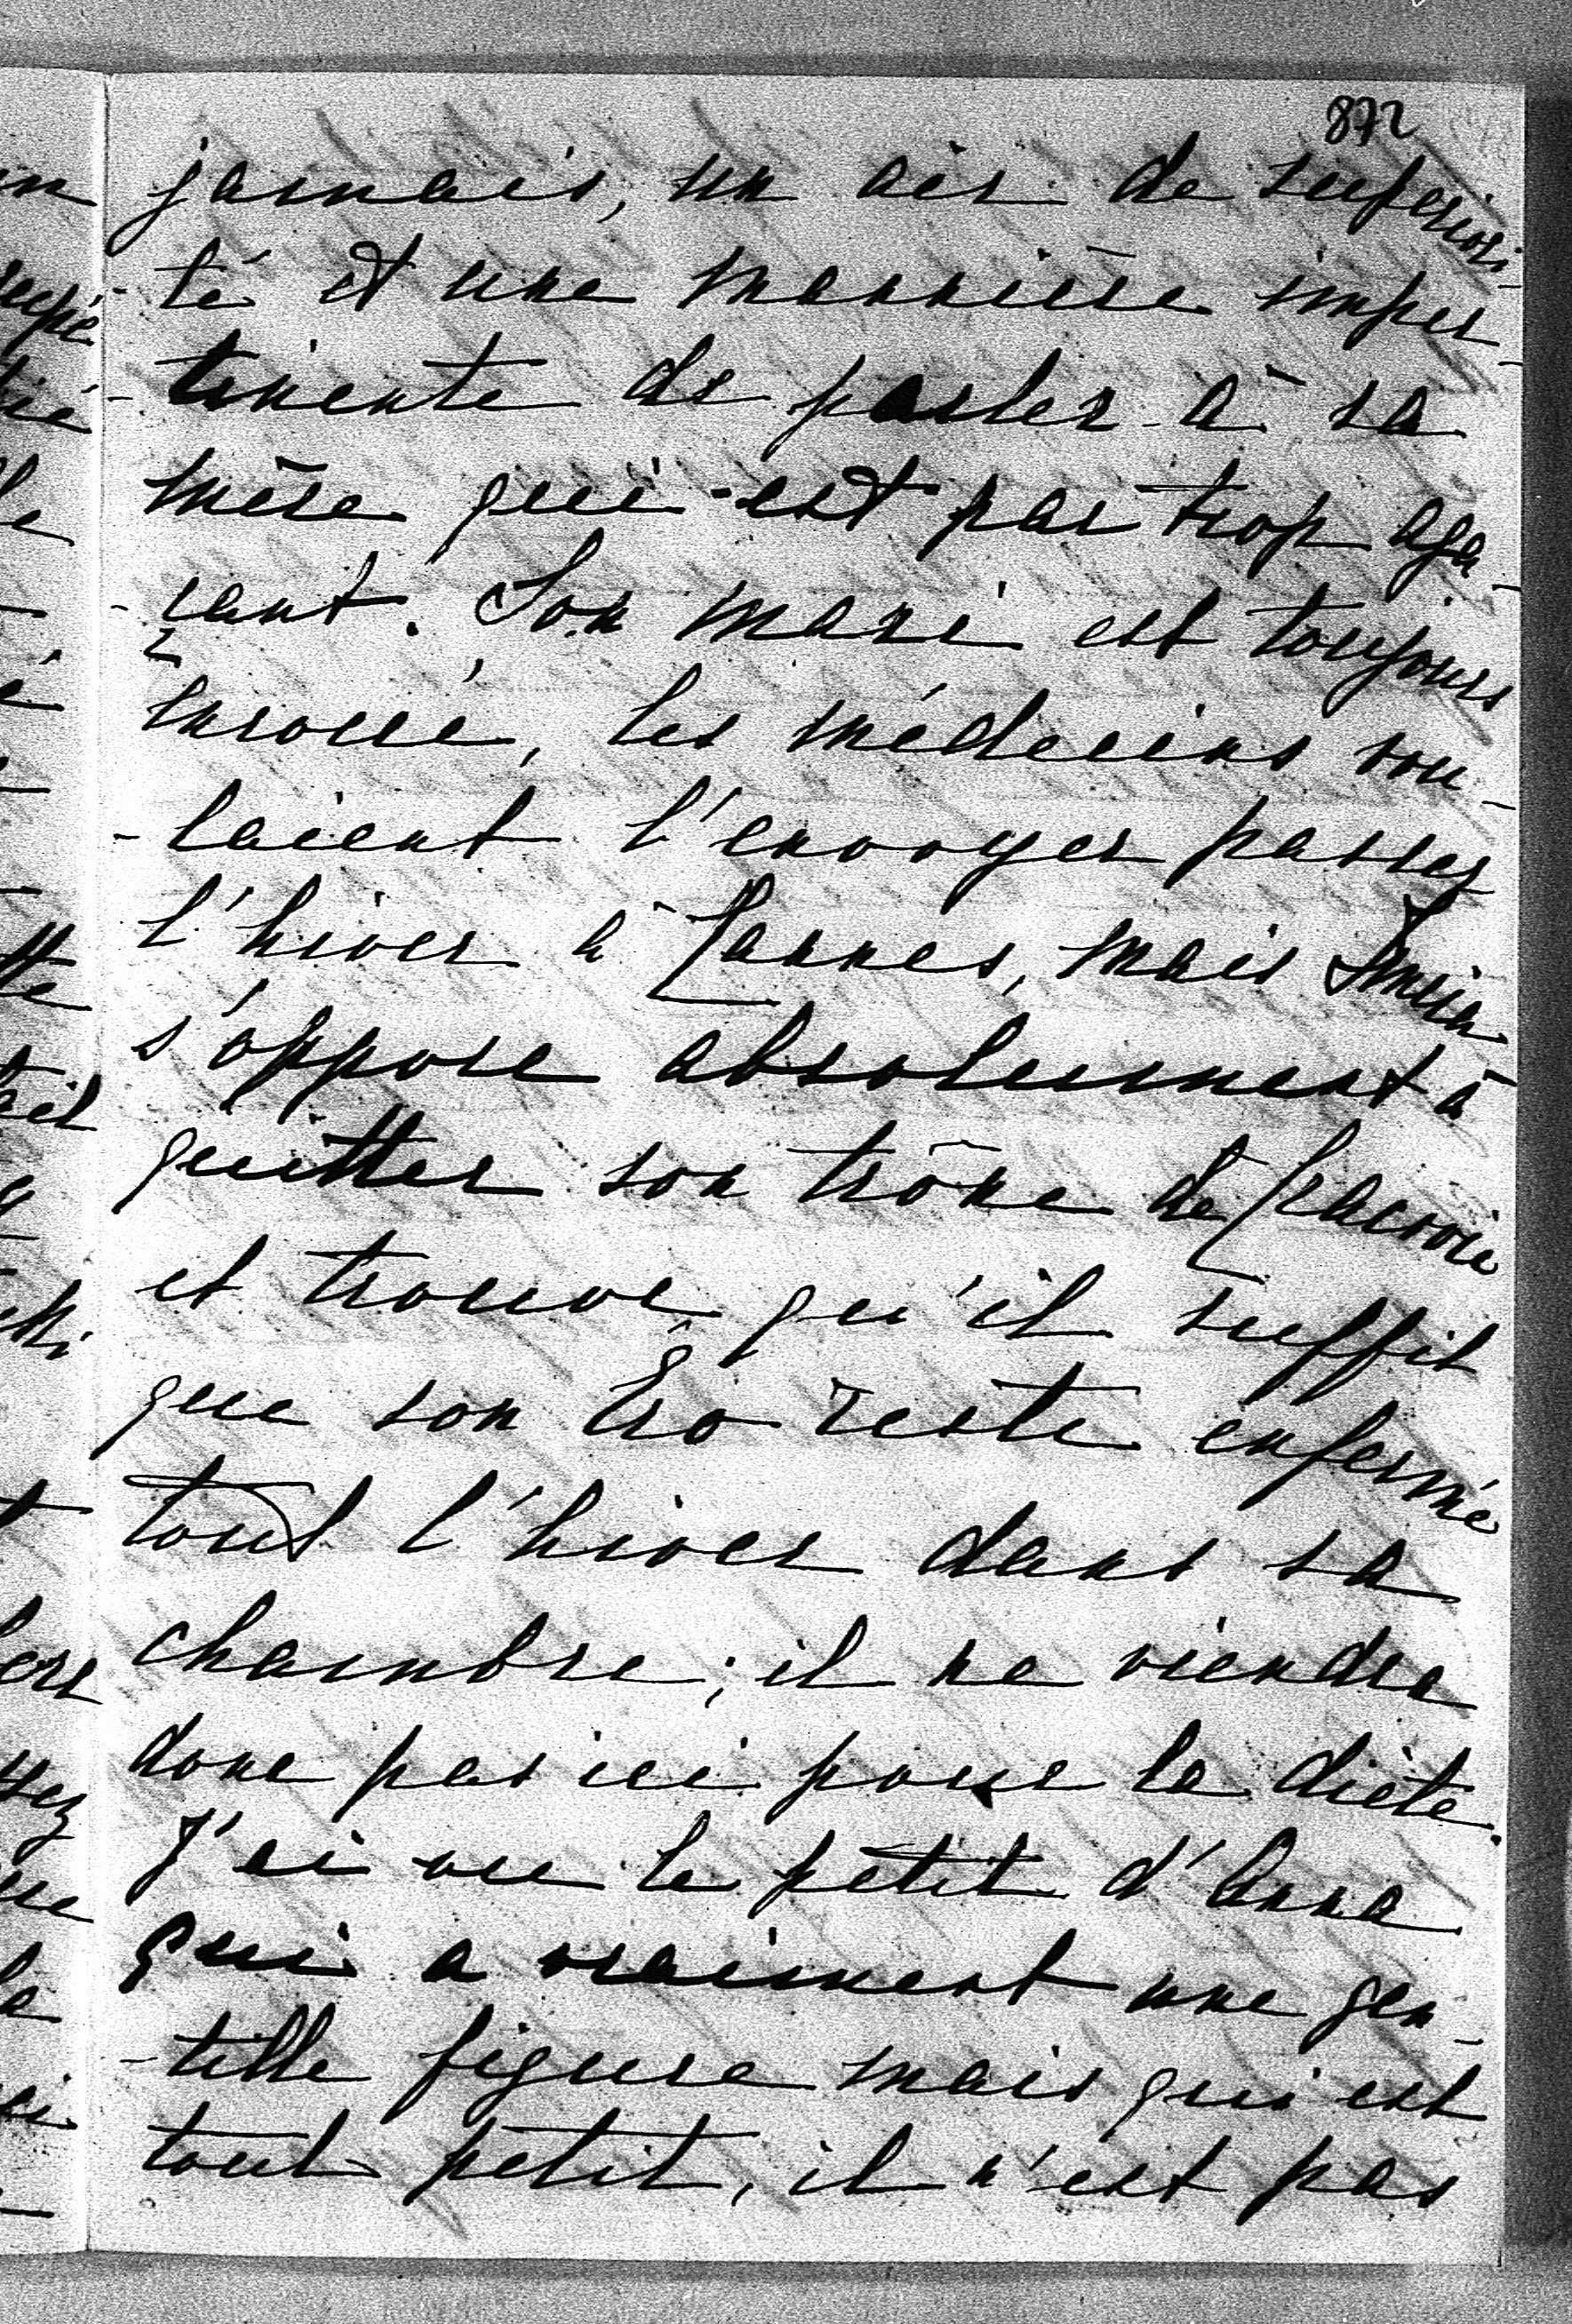 872
jamais, un air de superiori-
té et une mannière imper-
-tinente de parler à sa
mère qui est par trop aga-
-çant. Son mari est toujours
enroué, les médecins vou-
-laient l'envoyer passer
l'hiver à Cannes, mais
s'oppose absolument à
quitter son trône de Cracovie
et trouve qu'il suffit
que son reste enfermé
tout l'hiver dans sa
chambre ; il ne viendra
donc pas ici pour la diète.
J'ai vu le petit d'Anna
qui a vraiment une gen-
-tille figure mais qui est
tout petit, il n'est pas